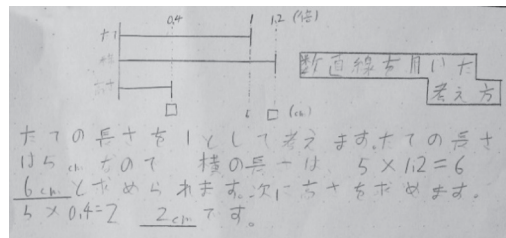 0.4 1 1.2 (倍)
たて
横
高さ
□ 5 □ (cm)
数直線を用いた
考え方
たての長さを1として考えます。たての長さ
は5cmなので 横の長さは 5×1.2=6
6cmと求められます。次に高さを求めます。
5×0.4=2 2cmです。